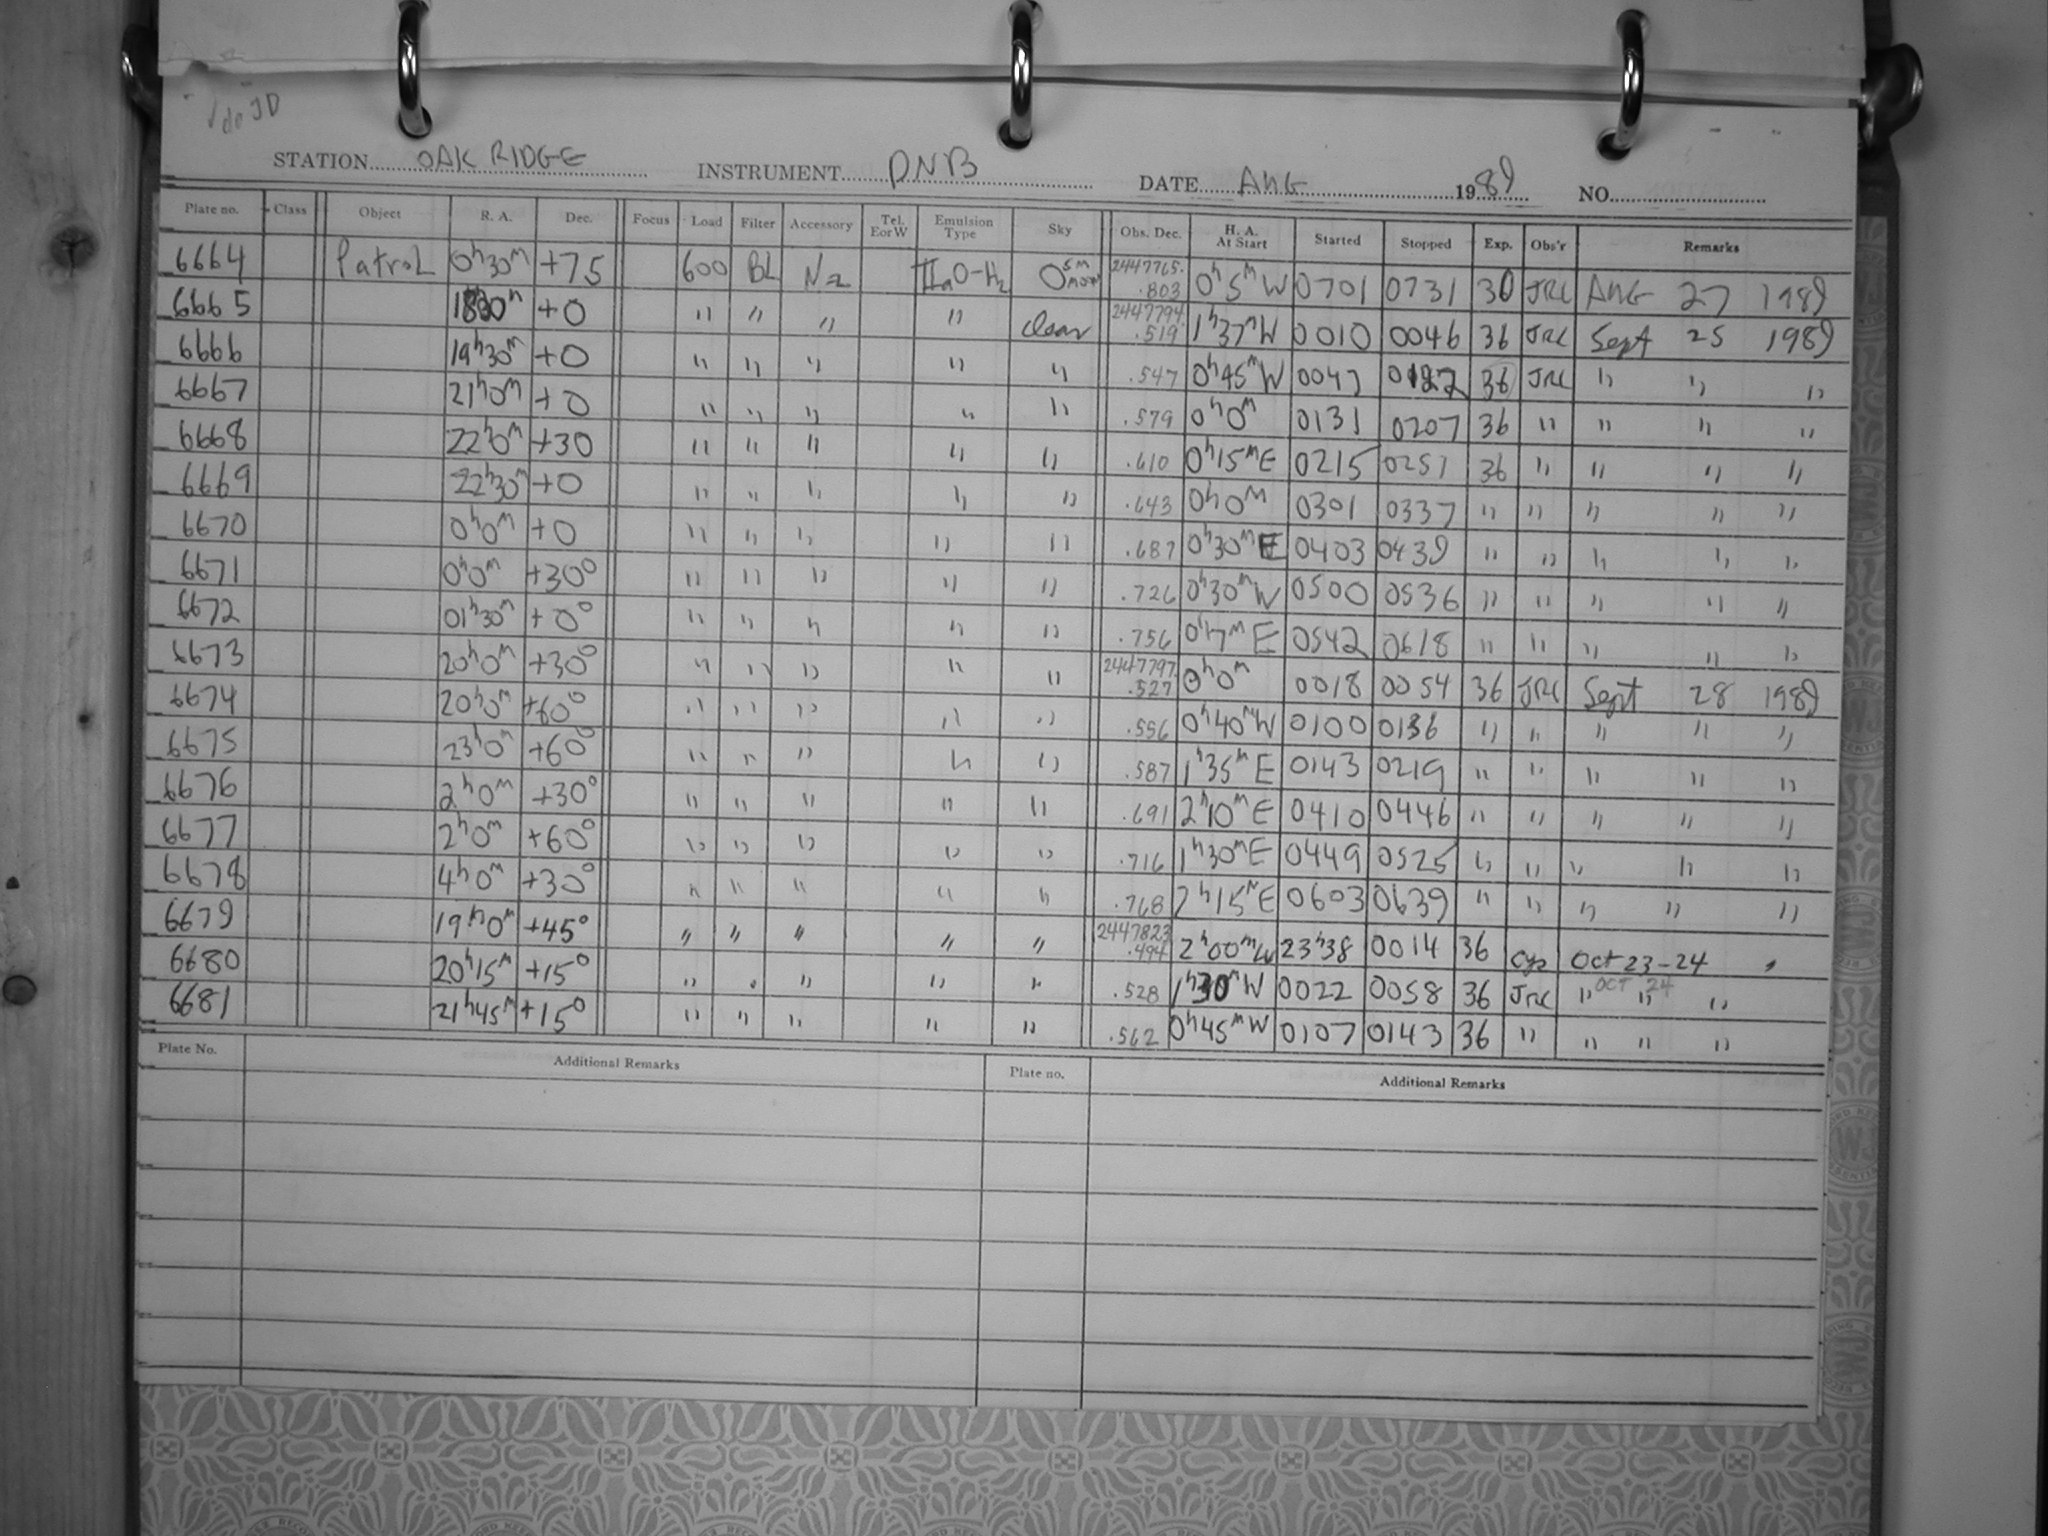 do JD
STATION OAK RIDGE INSTRUMENT DNB DATE AUG 1989 NO.
Plate no. Class Object R. A. Dec. Focus Load Filter Accessory Tel. E or W Emulsion Type Sky Obs. Dec. H. A. At Start Started Stopped Exp. Obs'r Remarks
6664 Patrol 0h30m +75 600 BL N2 IIaO-H2 2447765.803 0h5mW 0701 0731 30 JRC Aug 27 1989
6665 1830m +0 " " " " clear 2447794.519 1h37mW 0010 0046 36 JRC Sept 25 1989
6666 19h30m +0 " " " " " .547 0h45mW 0047 36 JRC " " "
6667 21h0m +0 " " " " " .579 0h0m 0131 0207 36 " " " "
6668 22h0m +30 " " " " " .610 0h15mE 0215 0251 36 " " " "
6669 22h30m +0 " " " " " .643 0h0m 0301 0337 " " " " "
6670 0h0m +0 " " " " " .687 0h30mE 0403 0439 " " " " "
6671 0h0m +30° " " " " " .726 0h30mW 0500 0536 " " " " "
6672 01h30m +0° " " " " " .756 0h7mE 0542 0618 " " " " "
6673 20h0m +30° " " " " " 2447797.527 0h0m 0018 0054 36 JRC Sept 28 1989
6674 20h0m +60° " " " " " .556 0h40mW 0100 0136 " " " " "
6675 23h0m +60° " " " " " .587 1h35mE 0143 0219 " " " " "
6676 2h0m +30° " " " " " .691 2h10mE 0410 0446 " " " " "
6677 2h0m +60° " " " " " .716 1h30mE 0449 0525 " " " " "
6678 4h0m +30° " " " " " .768 2h15mE 0603 0639 " " " " "
6679 19h0m +45° " " " " " 2447823.494 2h00mW 23h38 0014 36 Oct 23-24
6680 20h15m +15° " " " " " .528 1h30mW 0022 0058 36 JRC " OCT " 24 "
6681 21h45m +15° " " " " " .562 0h45mW 0107 0143 36 " " " "
Plate No. Additional Remarks Plate no. Additional Remarks